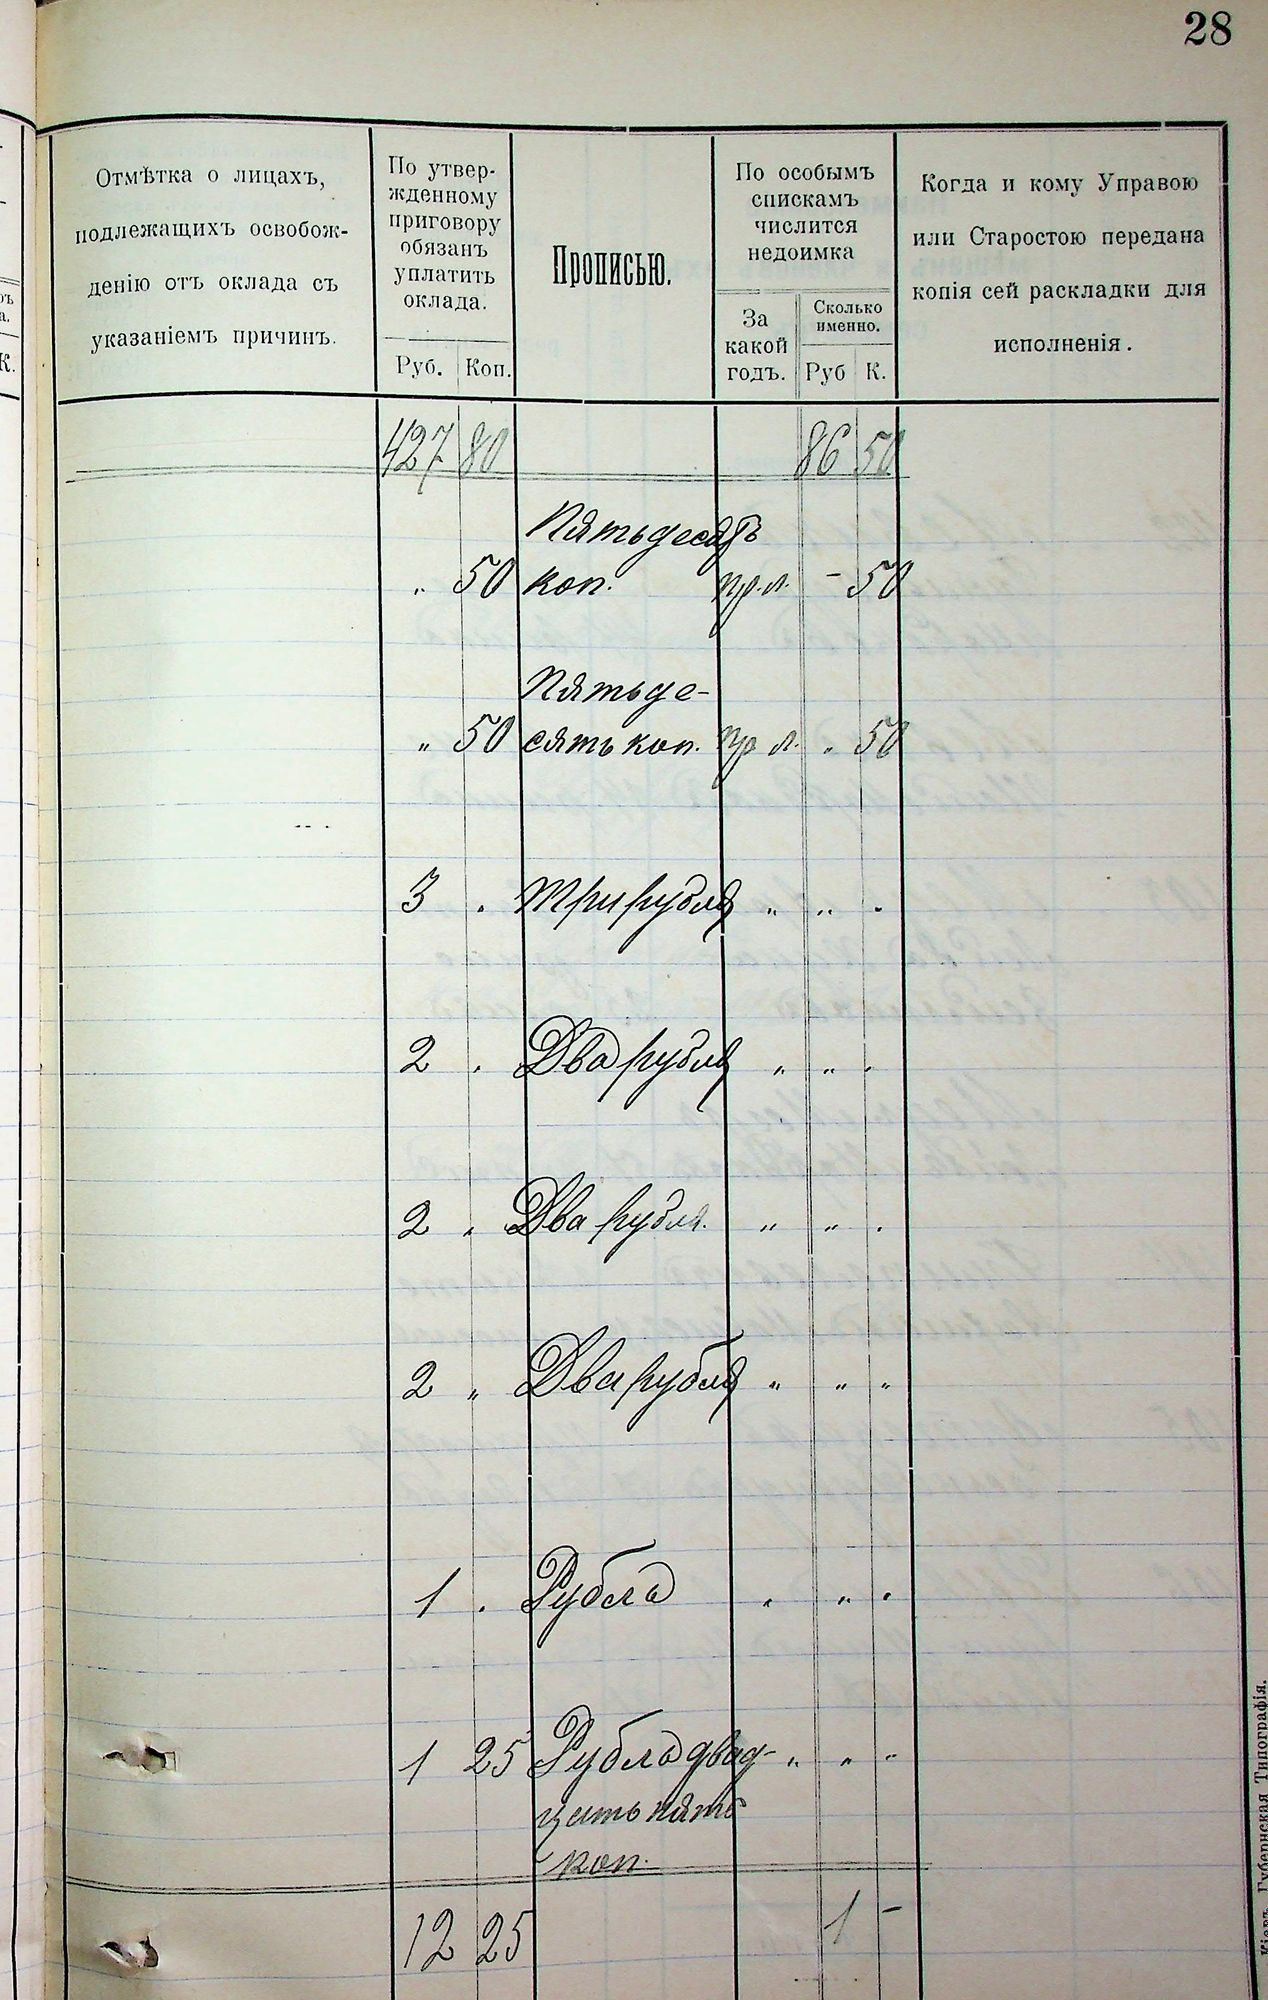 28
Отмѣтка о лицахъ,
подлежащихъ освобож-
денію отъ оклада съ
указаніемъ причинъ.
По утвер-
жденному
приговору
обязанъ
уплатить
оклада.
Руб. Коп.
Прописью.
По особымъ
спискамъ
числится
недоимка
За
какой
годъ.
Сколько
именно.
Руб К.
Когда и кому Управою
или Старостою передана
копія сей раскладки для
исполненія.
427 80 86 50
Пятьдесятъ
„ 50 коп. пр. л. – 50
Пятьде-
„ 50 сять коп. пр л. „ 50
3 . Три рубля „ „ .
2 . Два рубля „ „ .
2 . Два рубля. „ „ .
2 „ Два рубля „ „ „
1 . Рубль „ „ .
1 25 Рубль двад- „ „ „
цать пять
коп.
12 25 1 –
Кіевъ. Губернская Типографія.